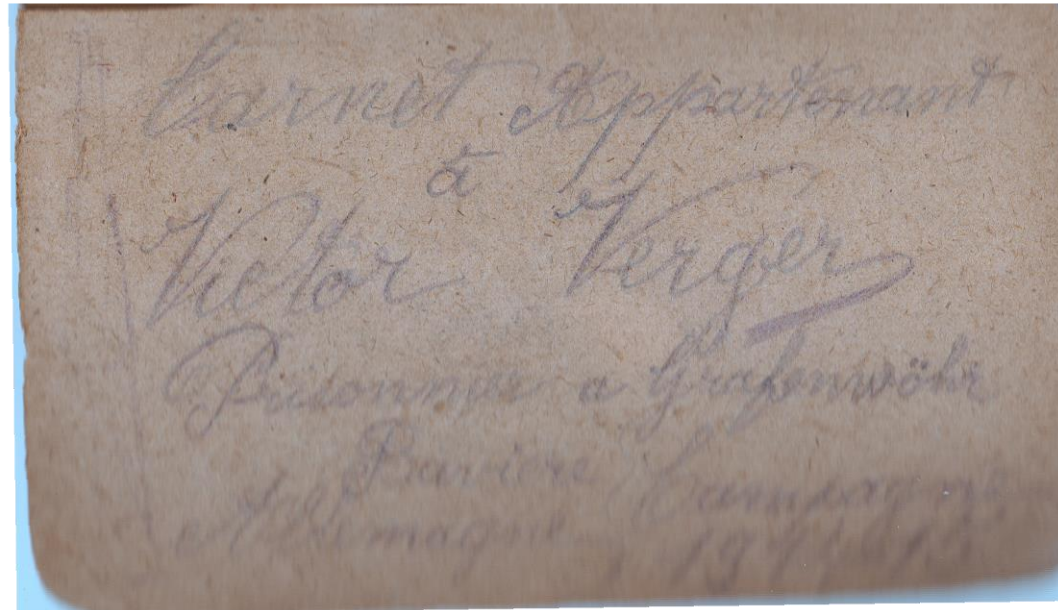 Carnet Appartenant
à
Victor Verger
Prisonnier a Grafenwöhr
Bavière
Allemagne Campagne